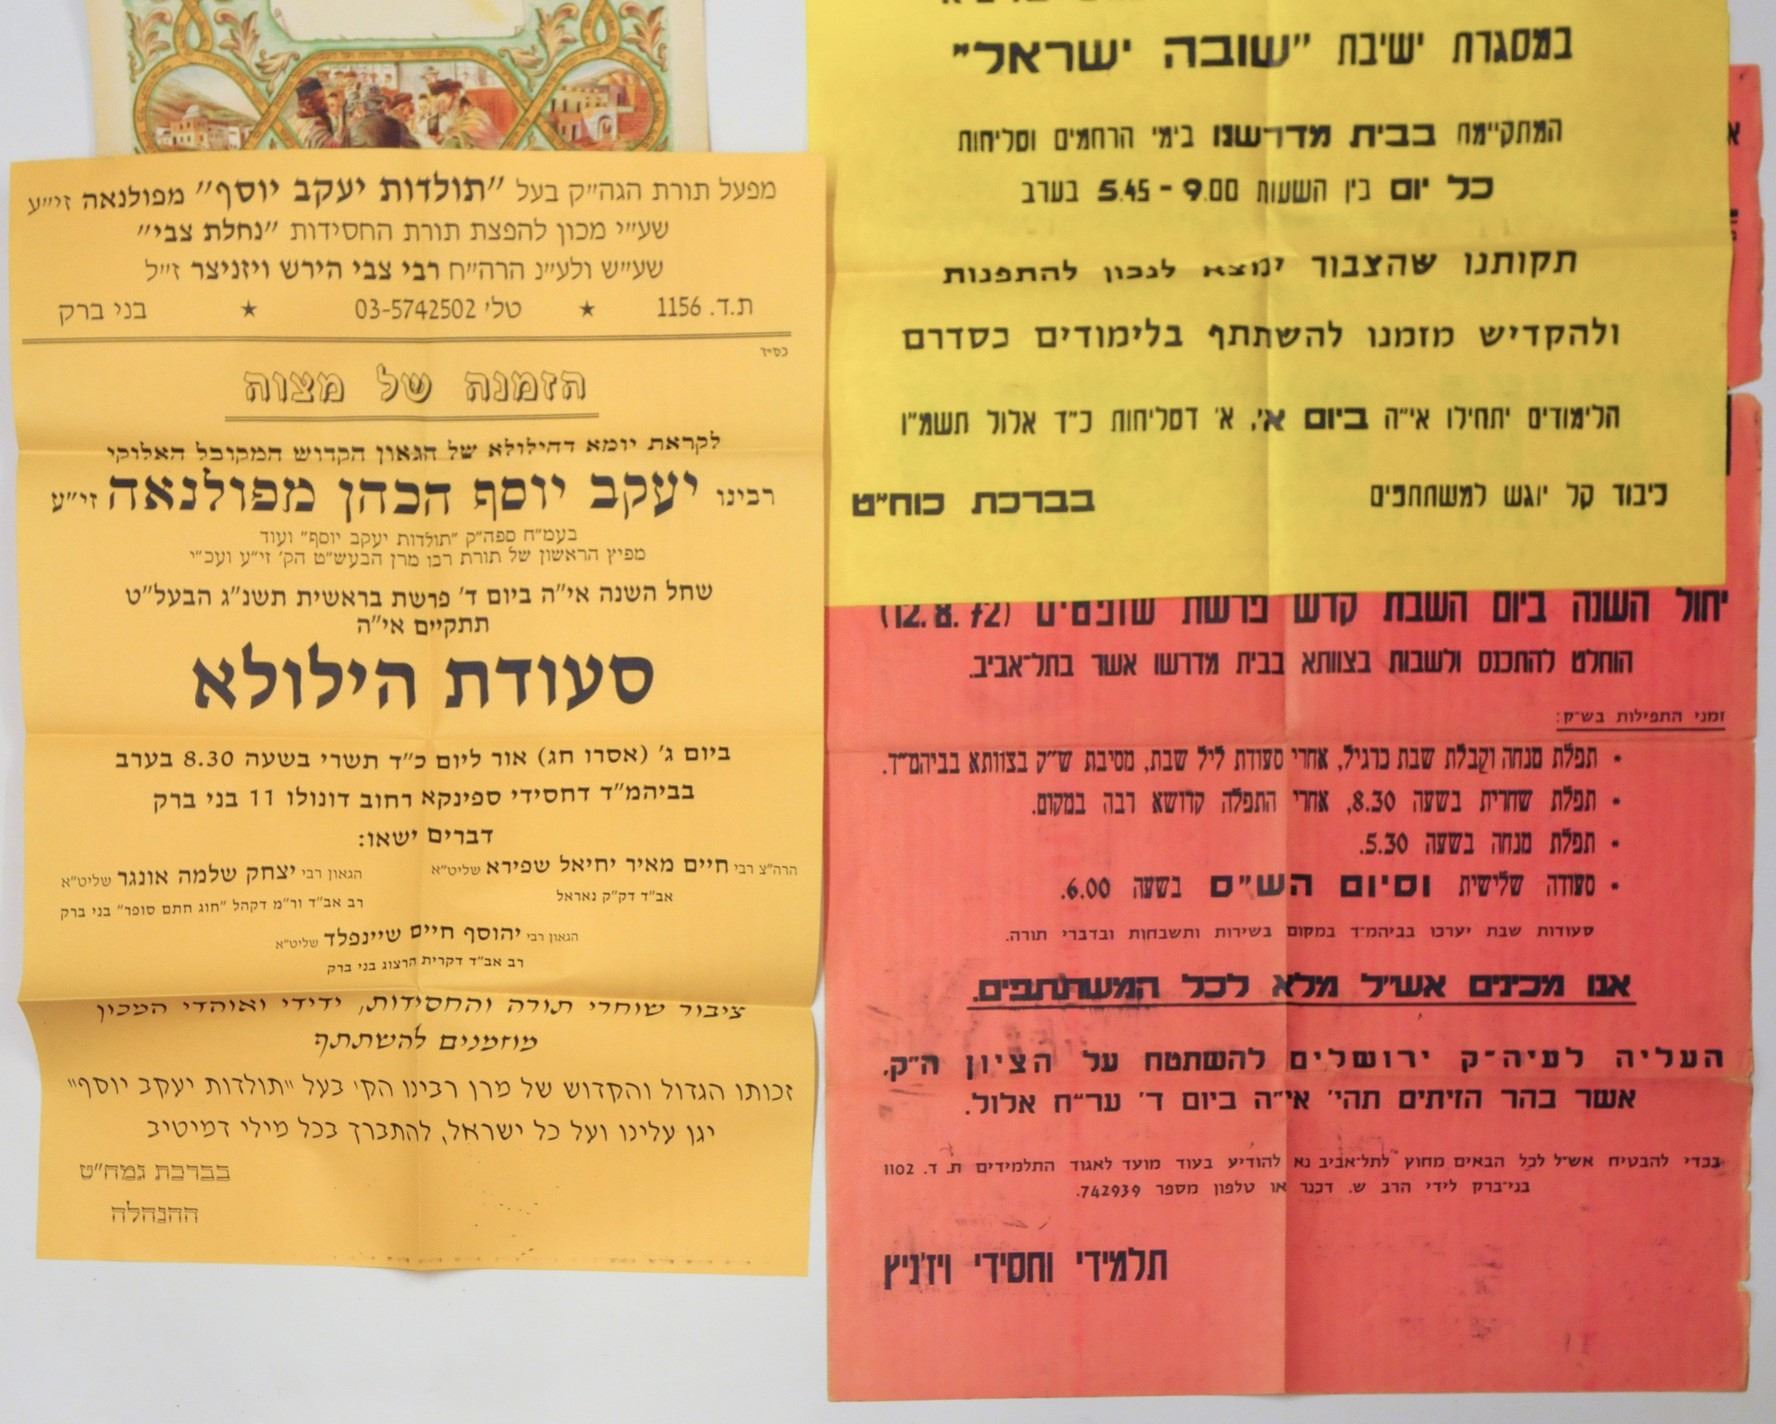 מפעל תורת הגה"ק בעל "תולדות יעקב יוסף" מפולנאה זי"ע
שע"י מכון להפצת תורת החסידות "נחלת צבי"
שע"ש ולע"נ הרה"ח רבי צבי הירש ויזניצר ז"ל
ת.ד. 1156 ★ טל' 03-5742502 ★ בני ברק
בס"ד
הזמנה של מצוה
לקראת יומא דהילולא של הגאון הקדוש המקובל האלוקי
רבינו יעקב יוסף הכהן מפולנאה זי"ע
בעמ"ח ספה"ק "תולדות יעקב יוסף" ועוד
מפיץ הראשון של תורת רבו מרן הבעש"ט הק' זי"ע ועכ"י
שחל השנה אי"ה ביום ד' פרשת בראשית תשנ"ג הבעל"ט
תתקיים אי"ה
סעודת הילולא
ביום ג' (אסרו חג) אור ליום כ"ד תשרי בשעה 8.30 בערב
בביהמ"ד דחסידי ספינקא רחוב דונולו 11 בני ברק
דברים ישאו:
הרה"צ רבי חיים מאיר יחיאל שפירא שליט"א
אב"ד דק"ק נאראל
הגאון רבי יצחק שלמה אונגר שליט"א
רב אב"ד ור"מ דקהל "חוג חתם סופר" בני ברק
הגאון רבי יהוסף חיים שיינפלד שליט"א
רב אב"ד דקרית הרצוג בני ברק
ציבור שוחרי תורה והחסידות, ידידי ואוהדי המכון
מוזמנים להשתתף
זכותו הגדול והקדוש של מרן רבינו הק' בעל "תולדות יעקב יוסף"
יגן עלינו ועל כל ישראל, להתברך בכל מילי דמיטיב
בברכת גמח"ט
ההנהלה
במסגרת ישיבת "שובה ישראל"
המתקיימת בבית מדרשנו בימי הרחמים וסליחות
כל יום בין השעות 9.00 - 5.45 בערב
תקותנו שהצבור ימצא לנכון להתפנות
ולהקדיש מזמנו להשתתף בלימודים כסדרם
הלימודים יתחילו אי"ה ביום א', א' דסליחות כ"ד אלול תשמ"ו
כיבוד קל יוגש למשתתפים
בברכת כוח"ט
יחול השנה ביום השבת קדש פרשת שופטים (12.8.72)
הוחלט להתכנס ולשבות בצוותא בבית מדרשו אשר בתל-אביב.
זמני התפילות בש"ק:
• תפלת מנחה וקבלת שבת כרגיל, אחרי סעודת ליל שבת, מסיבת ש"ק בצוותא בביהמ"ד.
• תפלת שחרית בשעה 8.30, אחרי התפלה קדושא רבה במקום.
• תפלת מנחה בשעה 5.30.
• סעודה שלישית וסיום הש"ס בשעה 6.00.
סעודות שבת יערכו בביהמ"ד במקום בשירות ותשבחות ובדברי תורה.
אנו מכינים אש"ל מלא לכל המשתתפים.
העליה לעיה"ק ירושלים להשתטח על הציון הק',
אשר בהר הזיתים תהי' אי"ה ביום ד' ער"ח אלול.
בכדי להבטיח אש"ל לכל הבאים מחוץ לתל-אביב נא להודיע בעוד מועד לאגוד התלמידים ת. ד. 1102
בני-ברק לידי הרב ש. דכנר או טלפון מספר 742939.
תלמידי וחסידי ויז'ניץ